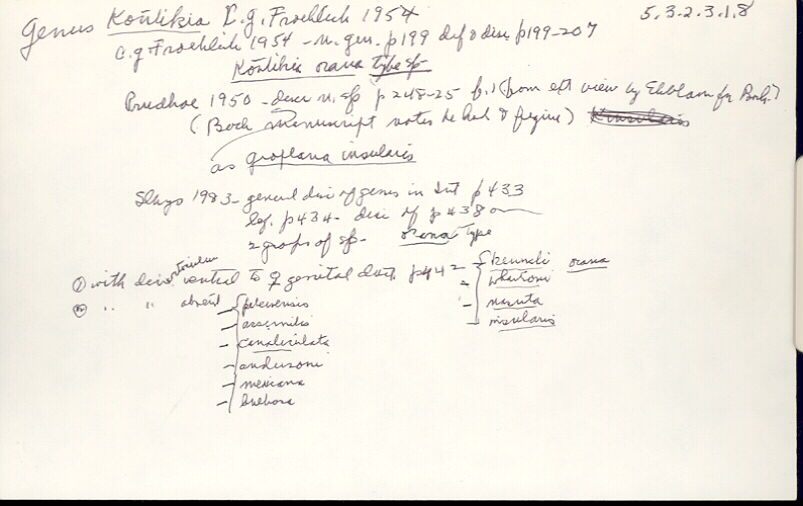 Genus Kontikia C.g. Froehlich 1954 5.3.2.3.1.8
C.g. Froehlich 1954 - n. gen. p199 def & disc p199-207
Kontikia orana type sp-
Prudhoe 1950 - descr n. sp p 248-25 f.1 (from view by for Bock?)
(Bock Manuscript notes he had & figure)
as geoplana insularis
1983 - general disc of genus in p 433
p434 - disc of p438
2 groups of sp- orana type
① with diverticulum ventral to ♀ genital duct. p442 - { kenneli orana
② " " absent whartoni
- pelewensis - nasuta
- assimilis - insularis
- canaliculata
- andersoni
- mexicana
- bulbosa